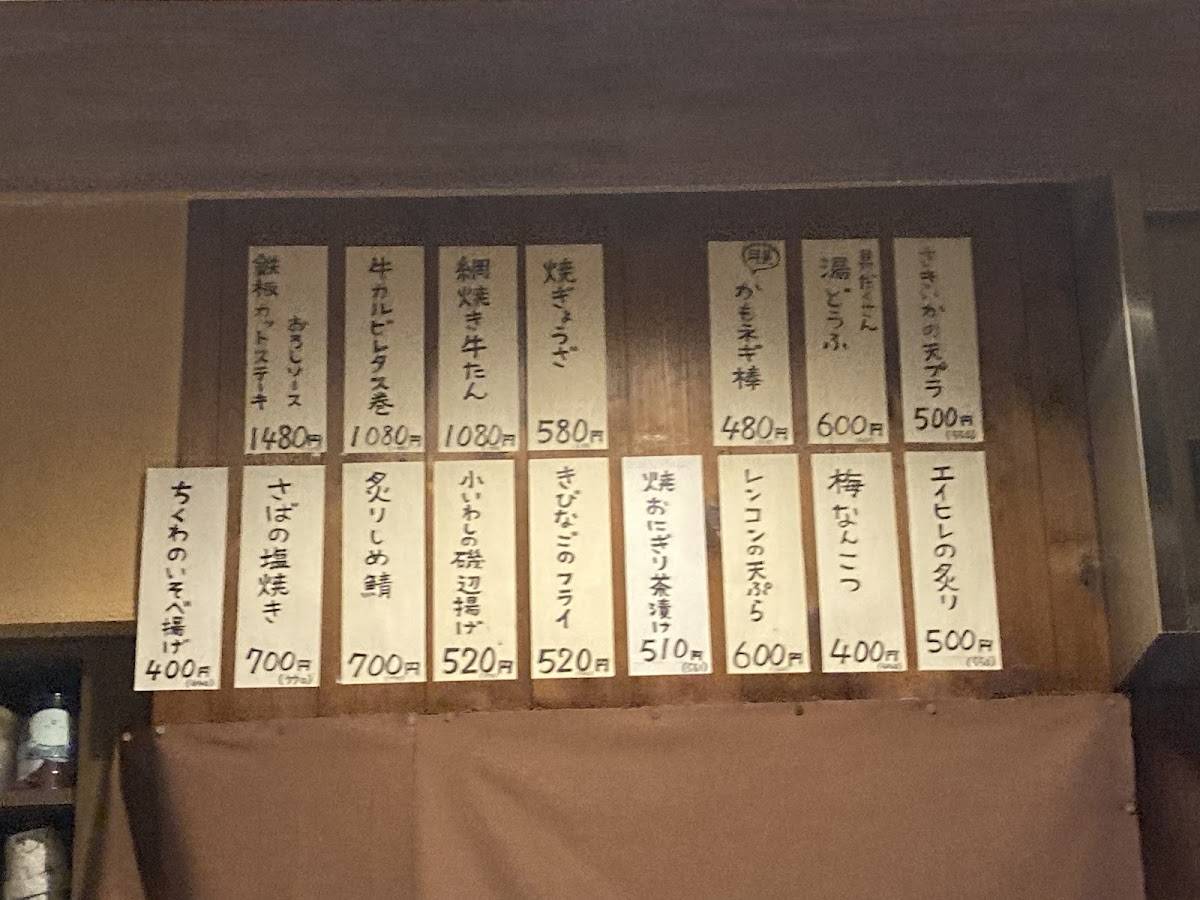 さきいかの天プラ
500円
(550)
具だくさん
湯どうふ
600円
がもネギ棒
480円
焼ぎょうざ
580円
網焼き牛たん
1080円
牛カルビレタス巻
1080円
鉄板カットステーキ
おろしソース
1480円
エイヒレの炙り
500円
(550)
梅なんこつ
400円
(440)
レンコンの天ぷら
600円
焼おにぎり茶漬け
510円
(561)
きびなごのフライ
520円
小いわしの磯辺揚げ
520円
炙りしめ鯖
700円
さばの塩焼き
700円
(770)
ちくわのいそべ揚げ
400円
(440)